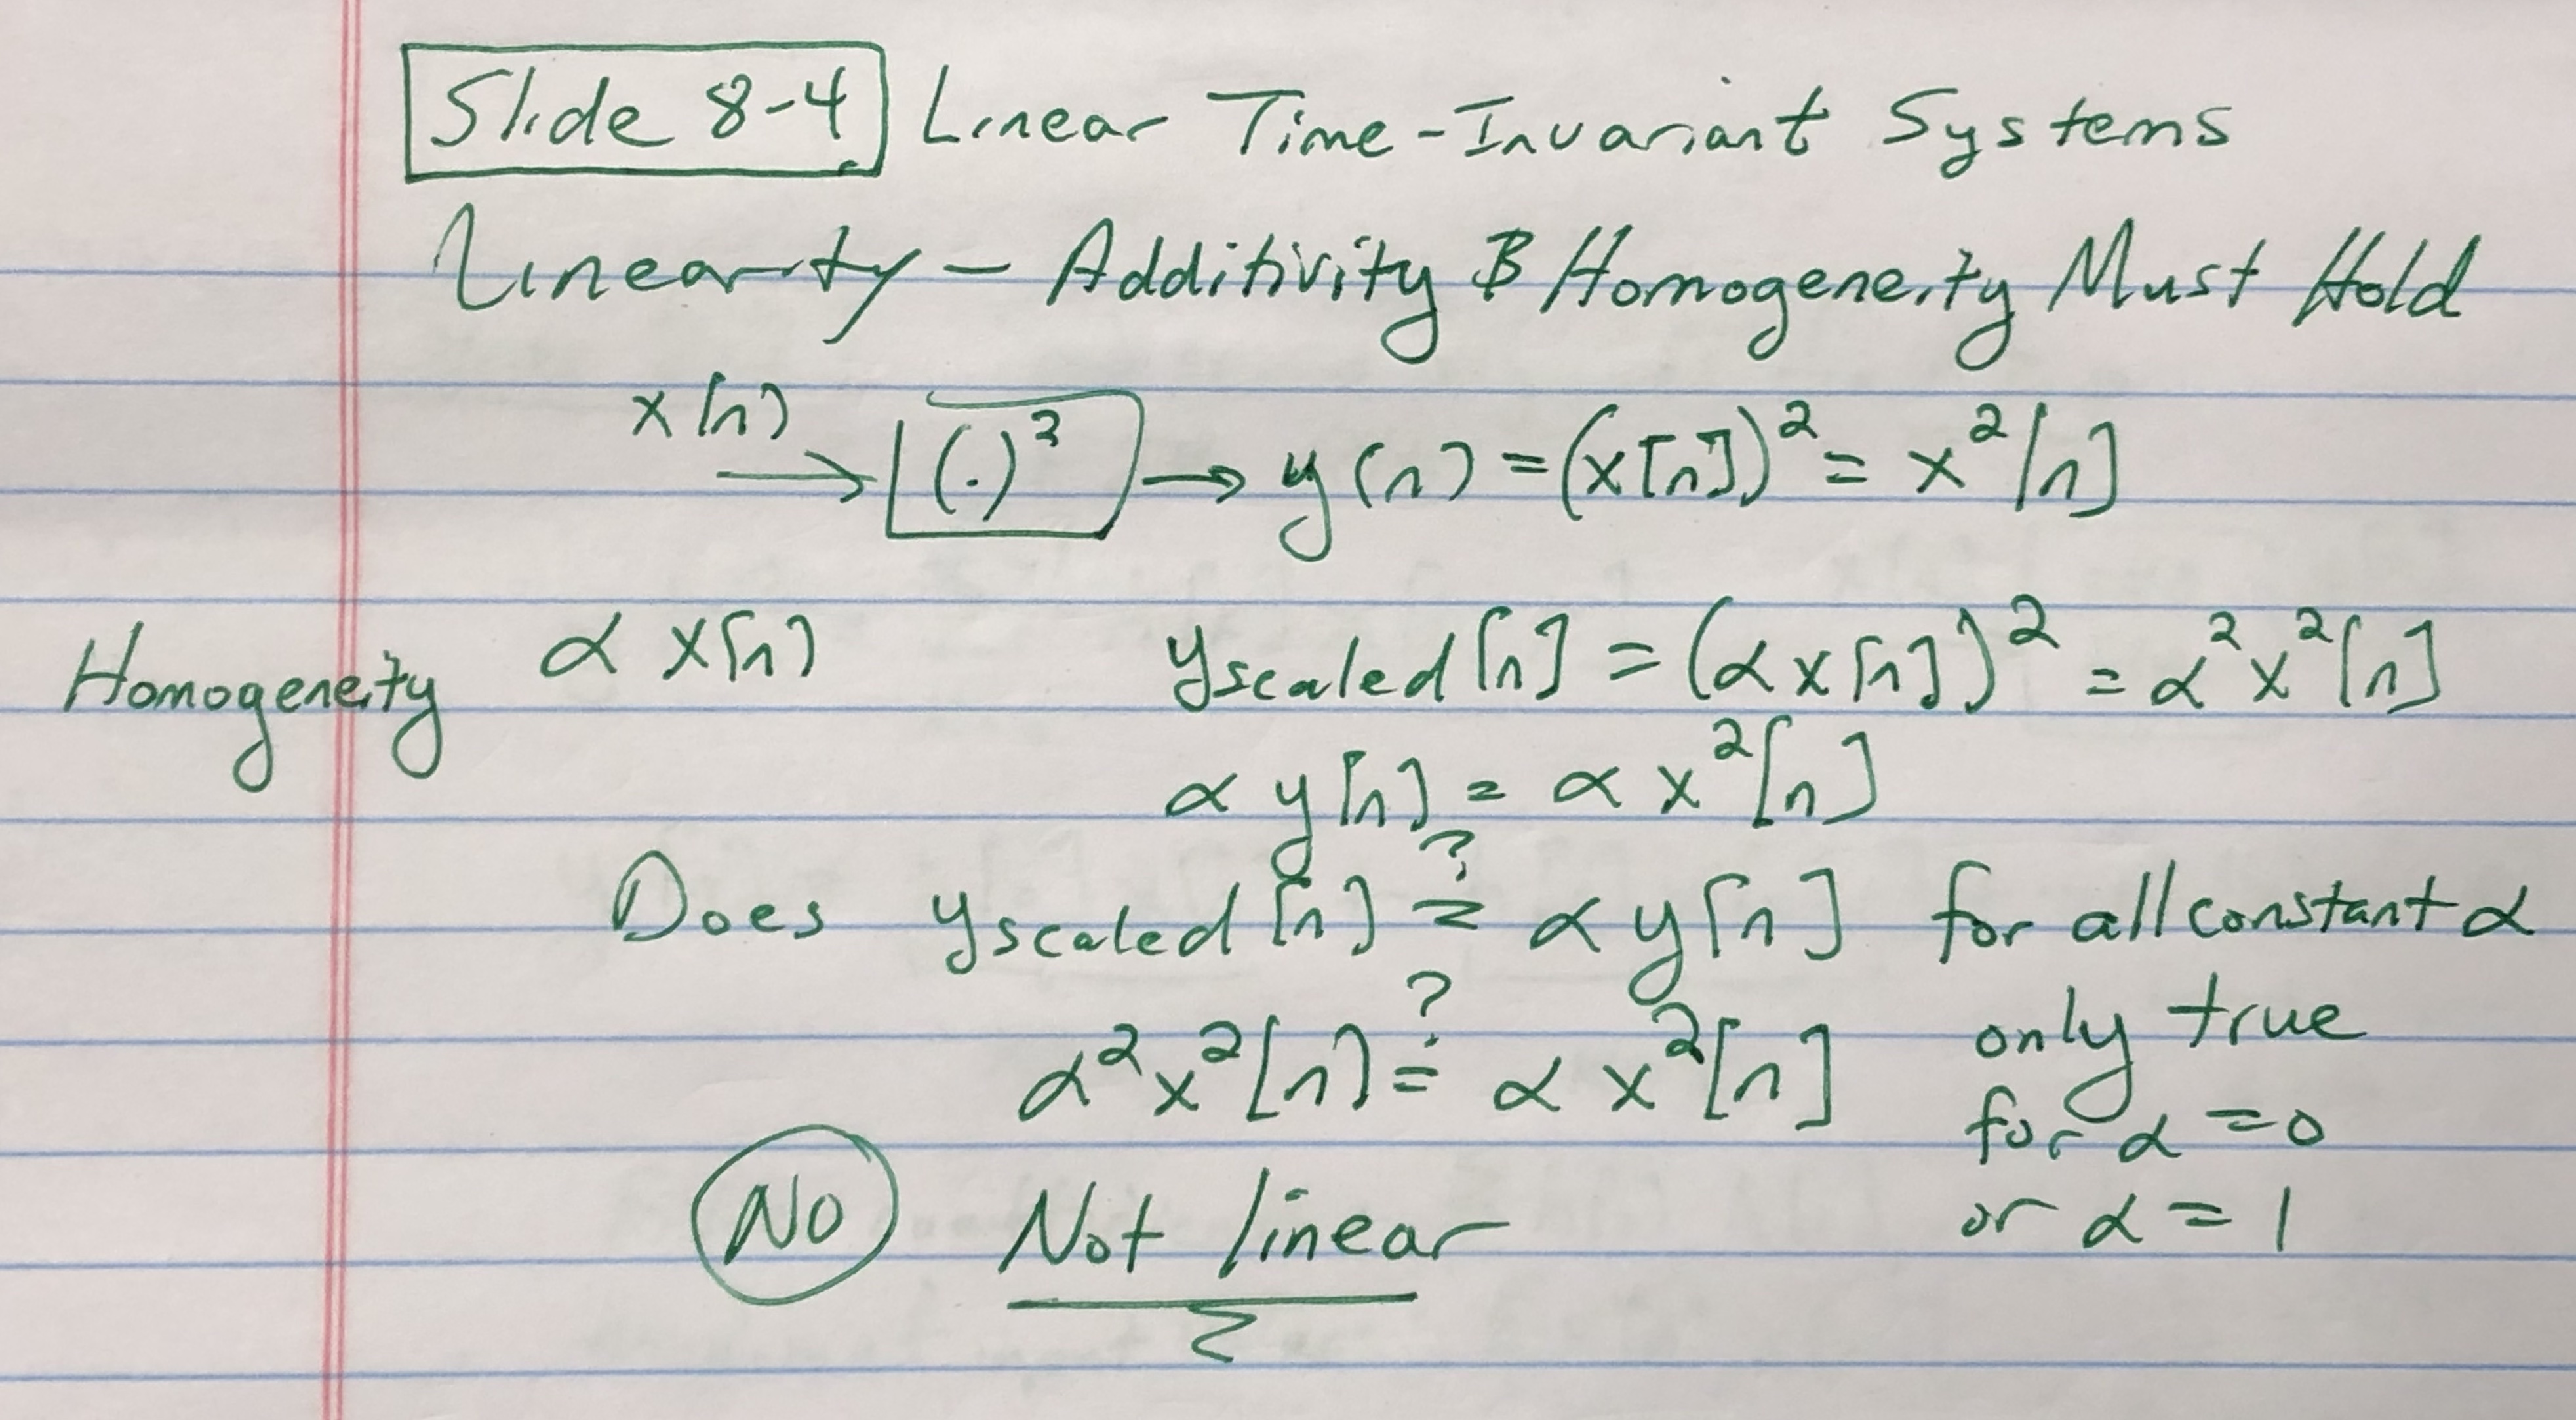 Slide 8-4 Linear Time-Invariant Systems
Linearity - Additivity & Homogeneity Must Hold
x[n] → (·)² → y(n) = (x[n])² = x²[n]
Homogeneity α x[n] yscaled[n] = (αx[n])² = α²x²[n]
α y[n] = α x²[n]
Does yscaled[n] ≟ α y[n] for all constant α
α²x²[n] ≟ α x²[n] only true
for α = 0
No Not linear or α = 1